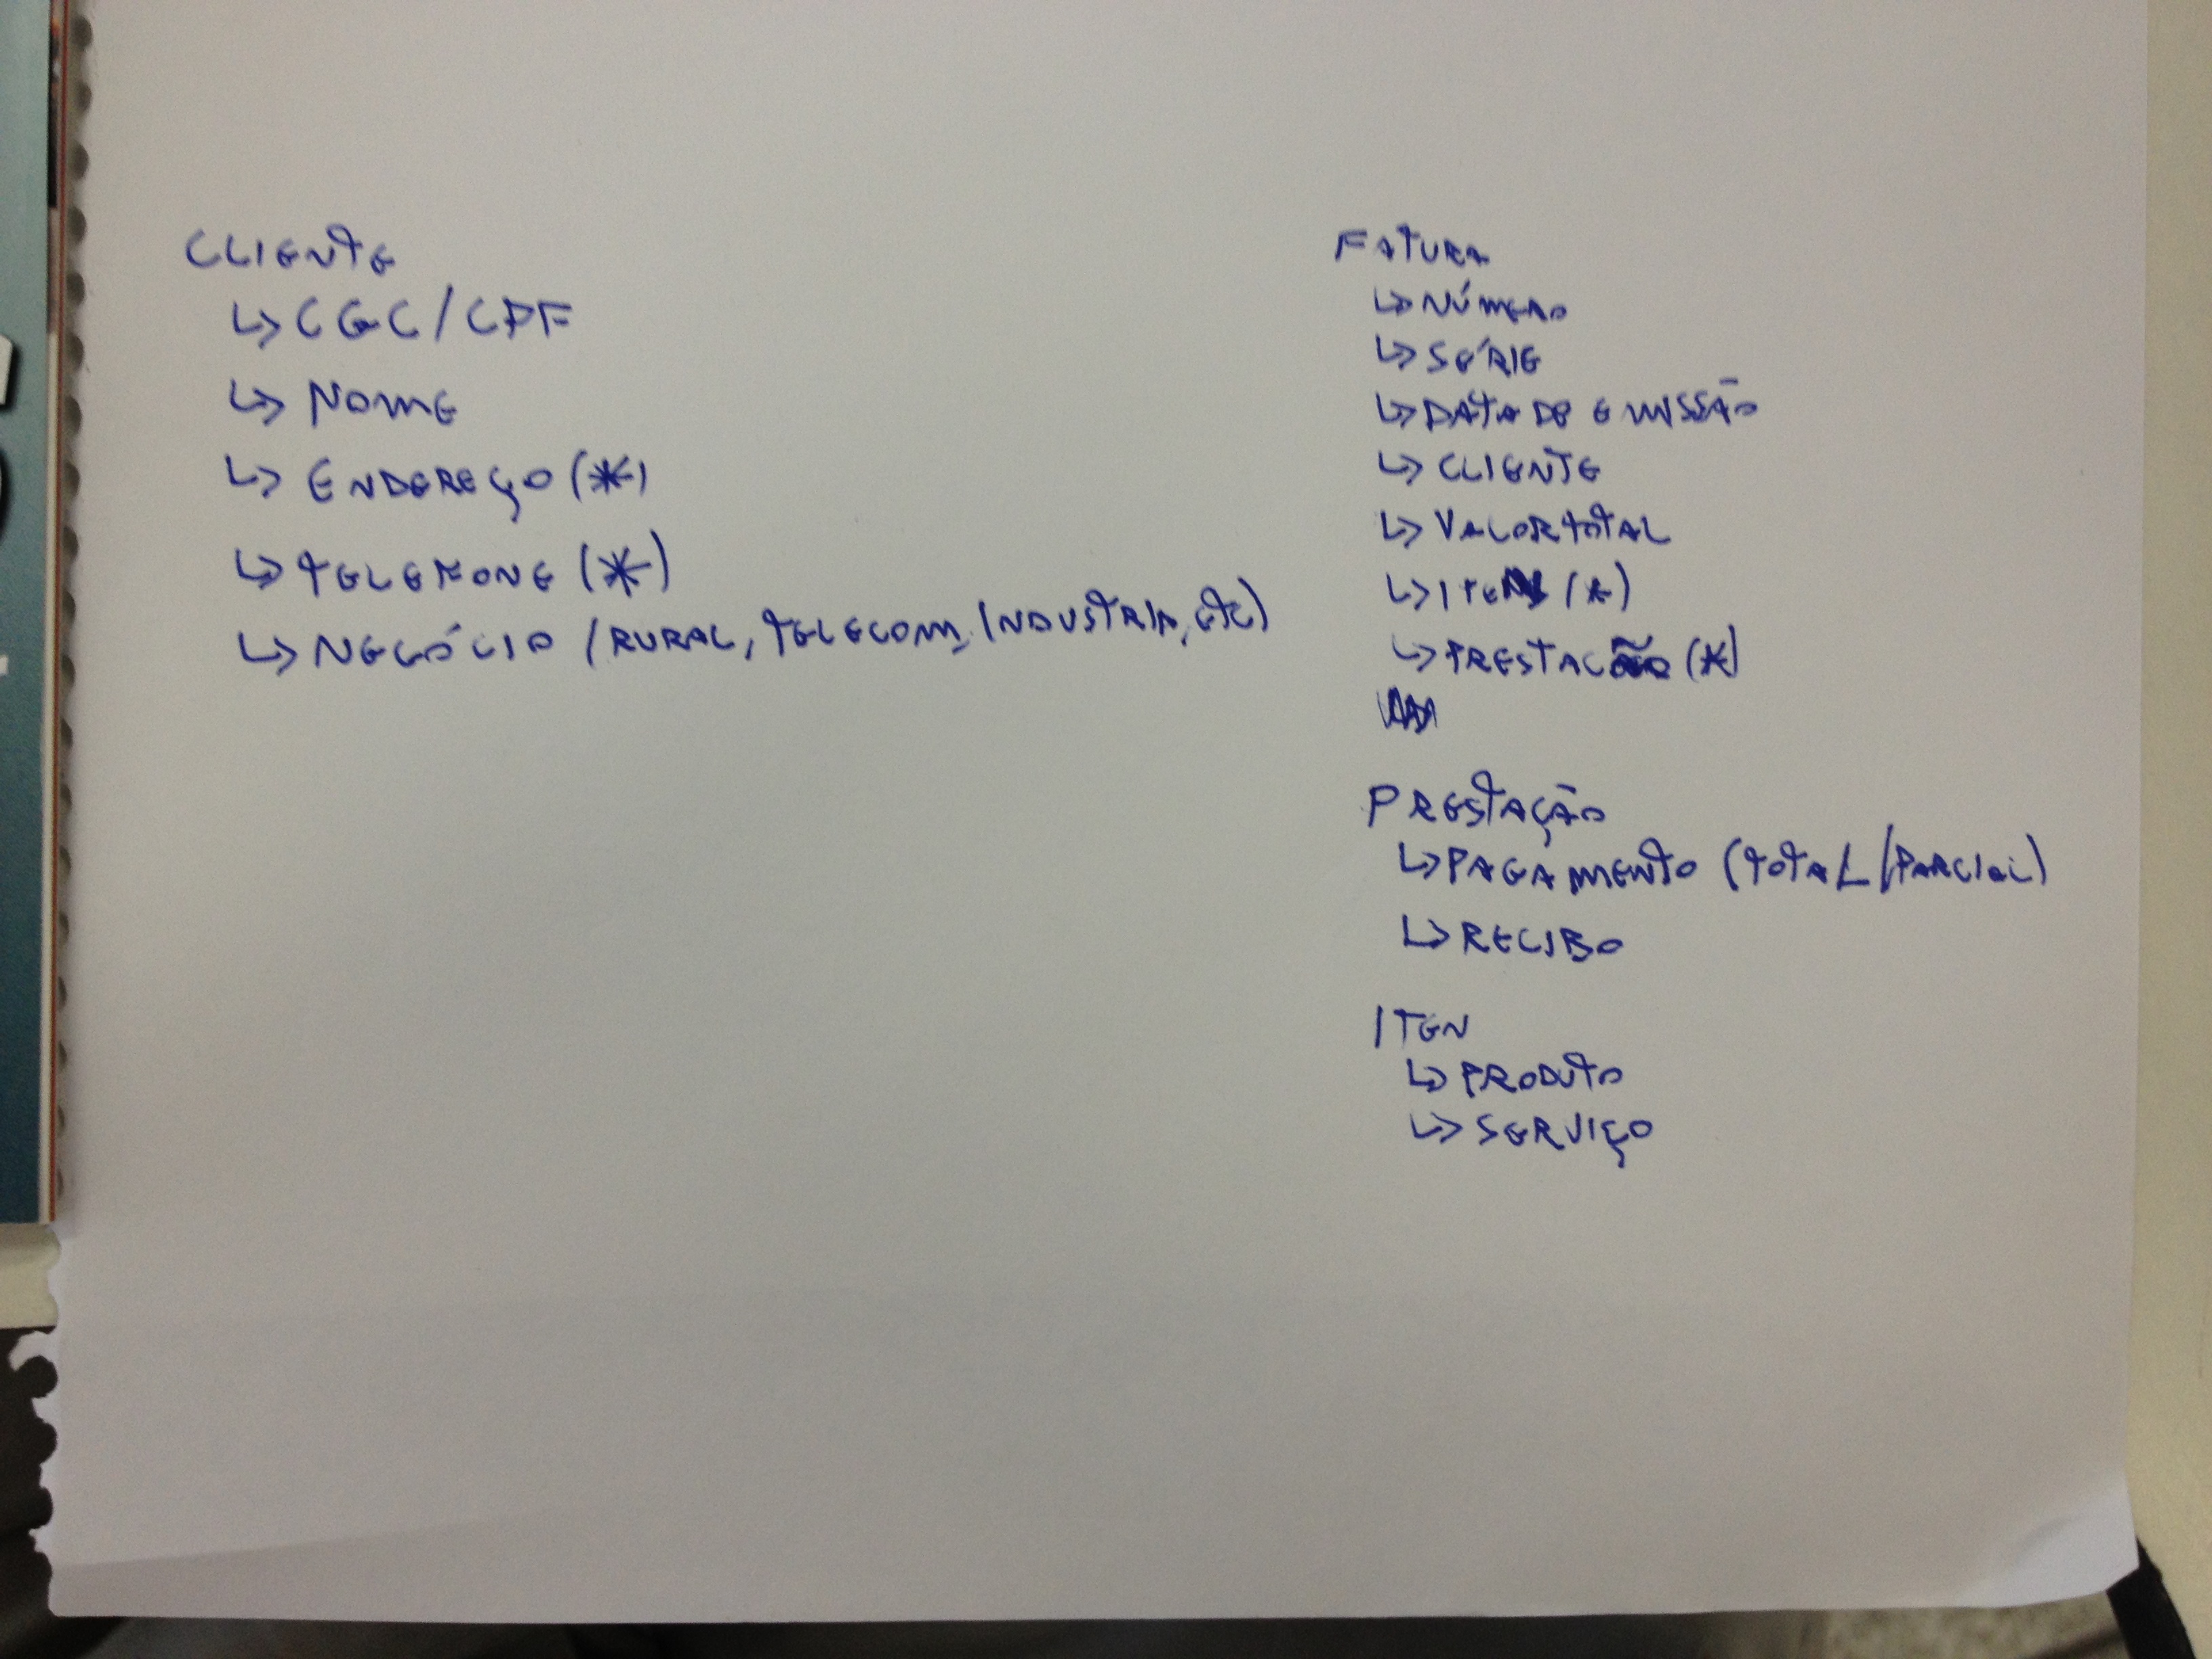 CLIENTE
↳ CGC/CPF
↳ NOME
↳ ENDEREÇO (*)
↳ TELEFONE (*)
↳ NEGÓCIO (RURAL, TELECOM, INDUSTRIA, ETC)
FATURA
↳ NÚMERO
↳ SÉRIE
↳ DATA DE EMISSÃO
↳ CLIENTE
↳ VALOR TOTAL
↳ ITEM (*)
↳ PRESTAÇÃO (*)
PRESTAÇÃO
↳ PAGAMENTO (TOTAL/PARCIAL)
↳ RECIBO
ITEN
↳ PRODUTO
↳ SERVIÇO